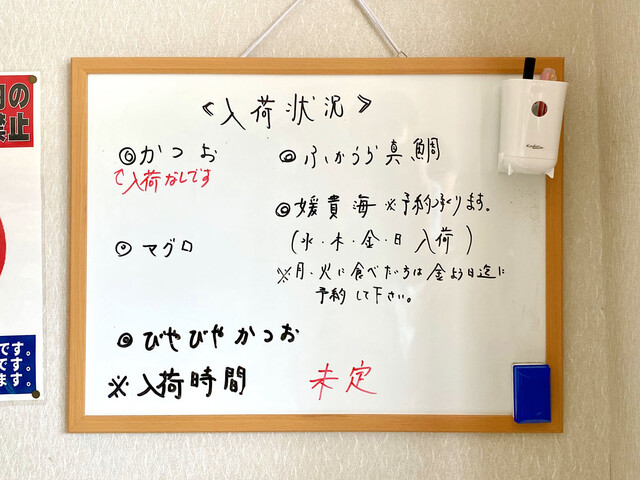 《入荷状況》
◎かつお
入荷なしです
◎マグロ
◎びやびやかつお
※入荷時間 未定
◎ふかうら真鯛
◎媛貴海 ※予約承ります。
(水・木・金・日 入荷)
※月・火に食べたい方は金よう日迄に
予約して下さい。
の
禁止
です。
です。
ます。